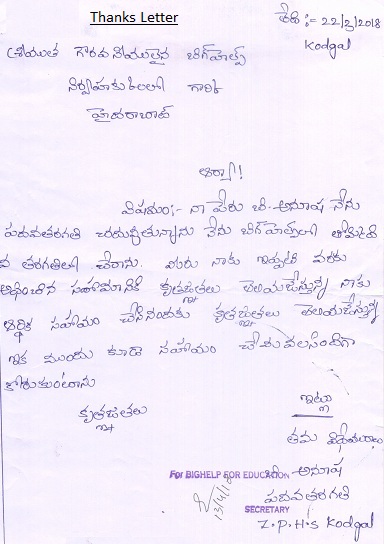 Thanks Letter
తేది :- 22/2/2018
Kodgal
శ్రీయుత గౌరవనీయులైన బిగ్‌హెల్ప్
నిర్వాహకులకు గారికి
హైదరాబాద్
ఆర్యా!
విషయం:- నా పేరు బి. అనూష నేను
పదవతరగతి చదువుతున్నాను నేను బిగ్‌హెల్ప్‌లో
వ తరగతిలో చేరాను. మీరు నాకు ఇప్పటి వరకు
అందించిన సహాయానికి కృతజ్ఞతలు తెలియజేస్తున్న నాకు
ఆర్థిక సహాయం చేసినందుకు కృతజ్ఞతలు తెలియజేస్తున్న
ఇక ముందు కూడా సహాయం చేయవలసిందిగా
కోరుకుంటాను
కృతజ్ఞతలు
ఇట్లు
తమ విధేయురాలు
For BIGHELP FOR EDUCATION
బి. అనూష
పదవతరగతి
13/4/18
SECRETARY
Z.P.H.S Kodgal